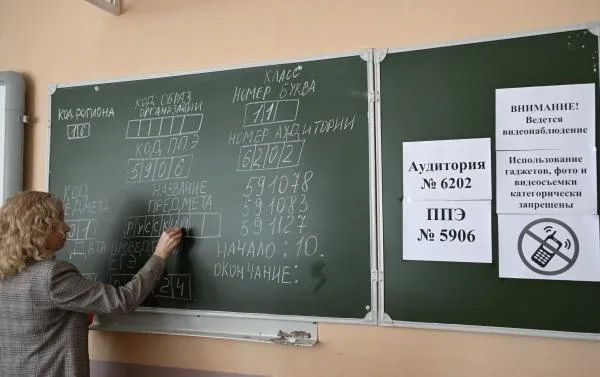 КОД РЕГИОНА
КОД ОБРАЗ.
ОРГАНИЗАЦИИ
КОД ППЭ
5906
КОД
НАЗВАНИЕ
ПРЕДМЕТА
РУССКИЙ
ДАТА
ЕГЭ
24
КЛАСС
НОМЕР БУКВА
11
НОМЕР АУДИТОРИИ
6202
591078
591083
591127
НАЧАЛО: 10.
ОКОНЧАНИЕ:
Аудитория
№ 6202
ППЭ
№ 5906
ВНИМАНИЕ!
Ведется
видеонаблюдение
Использование
гаджетов, фото и
видеосъемки
категорически
запрещены